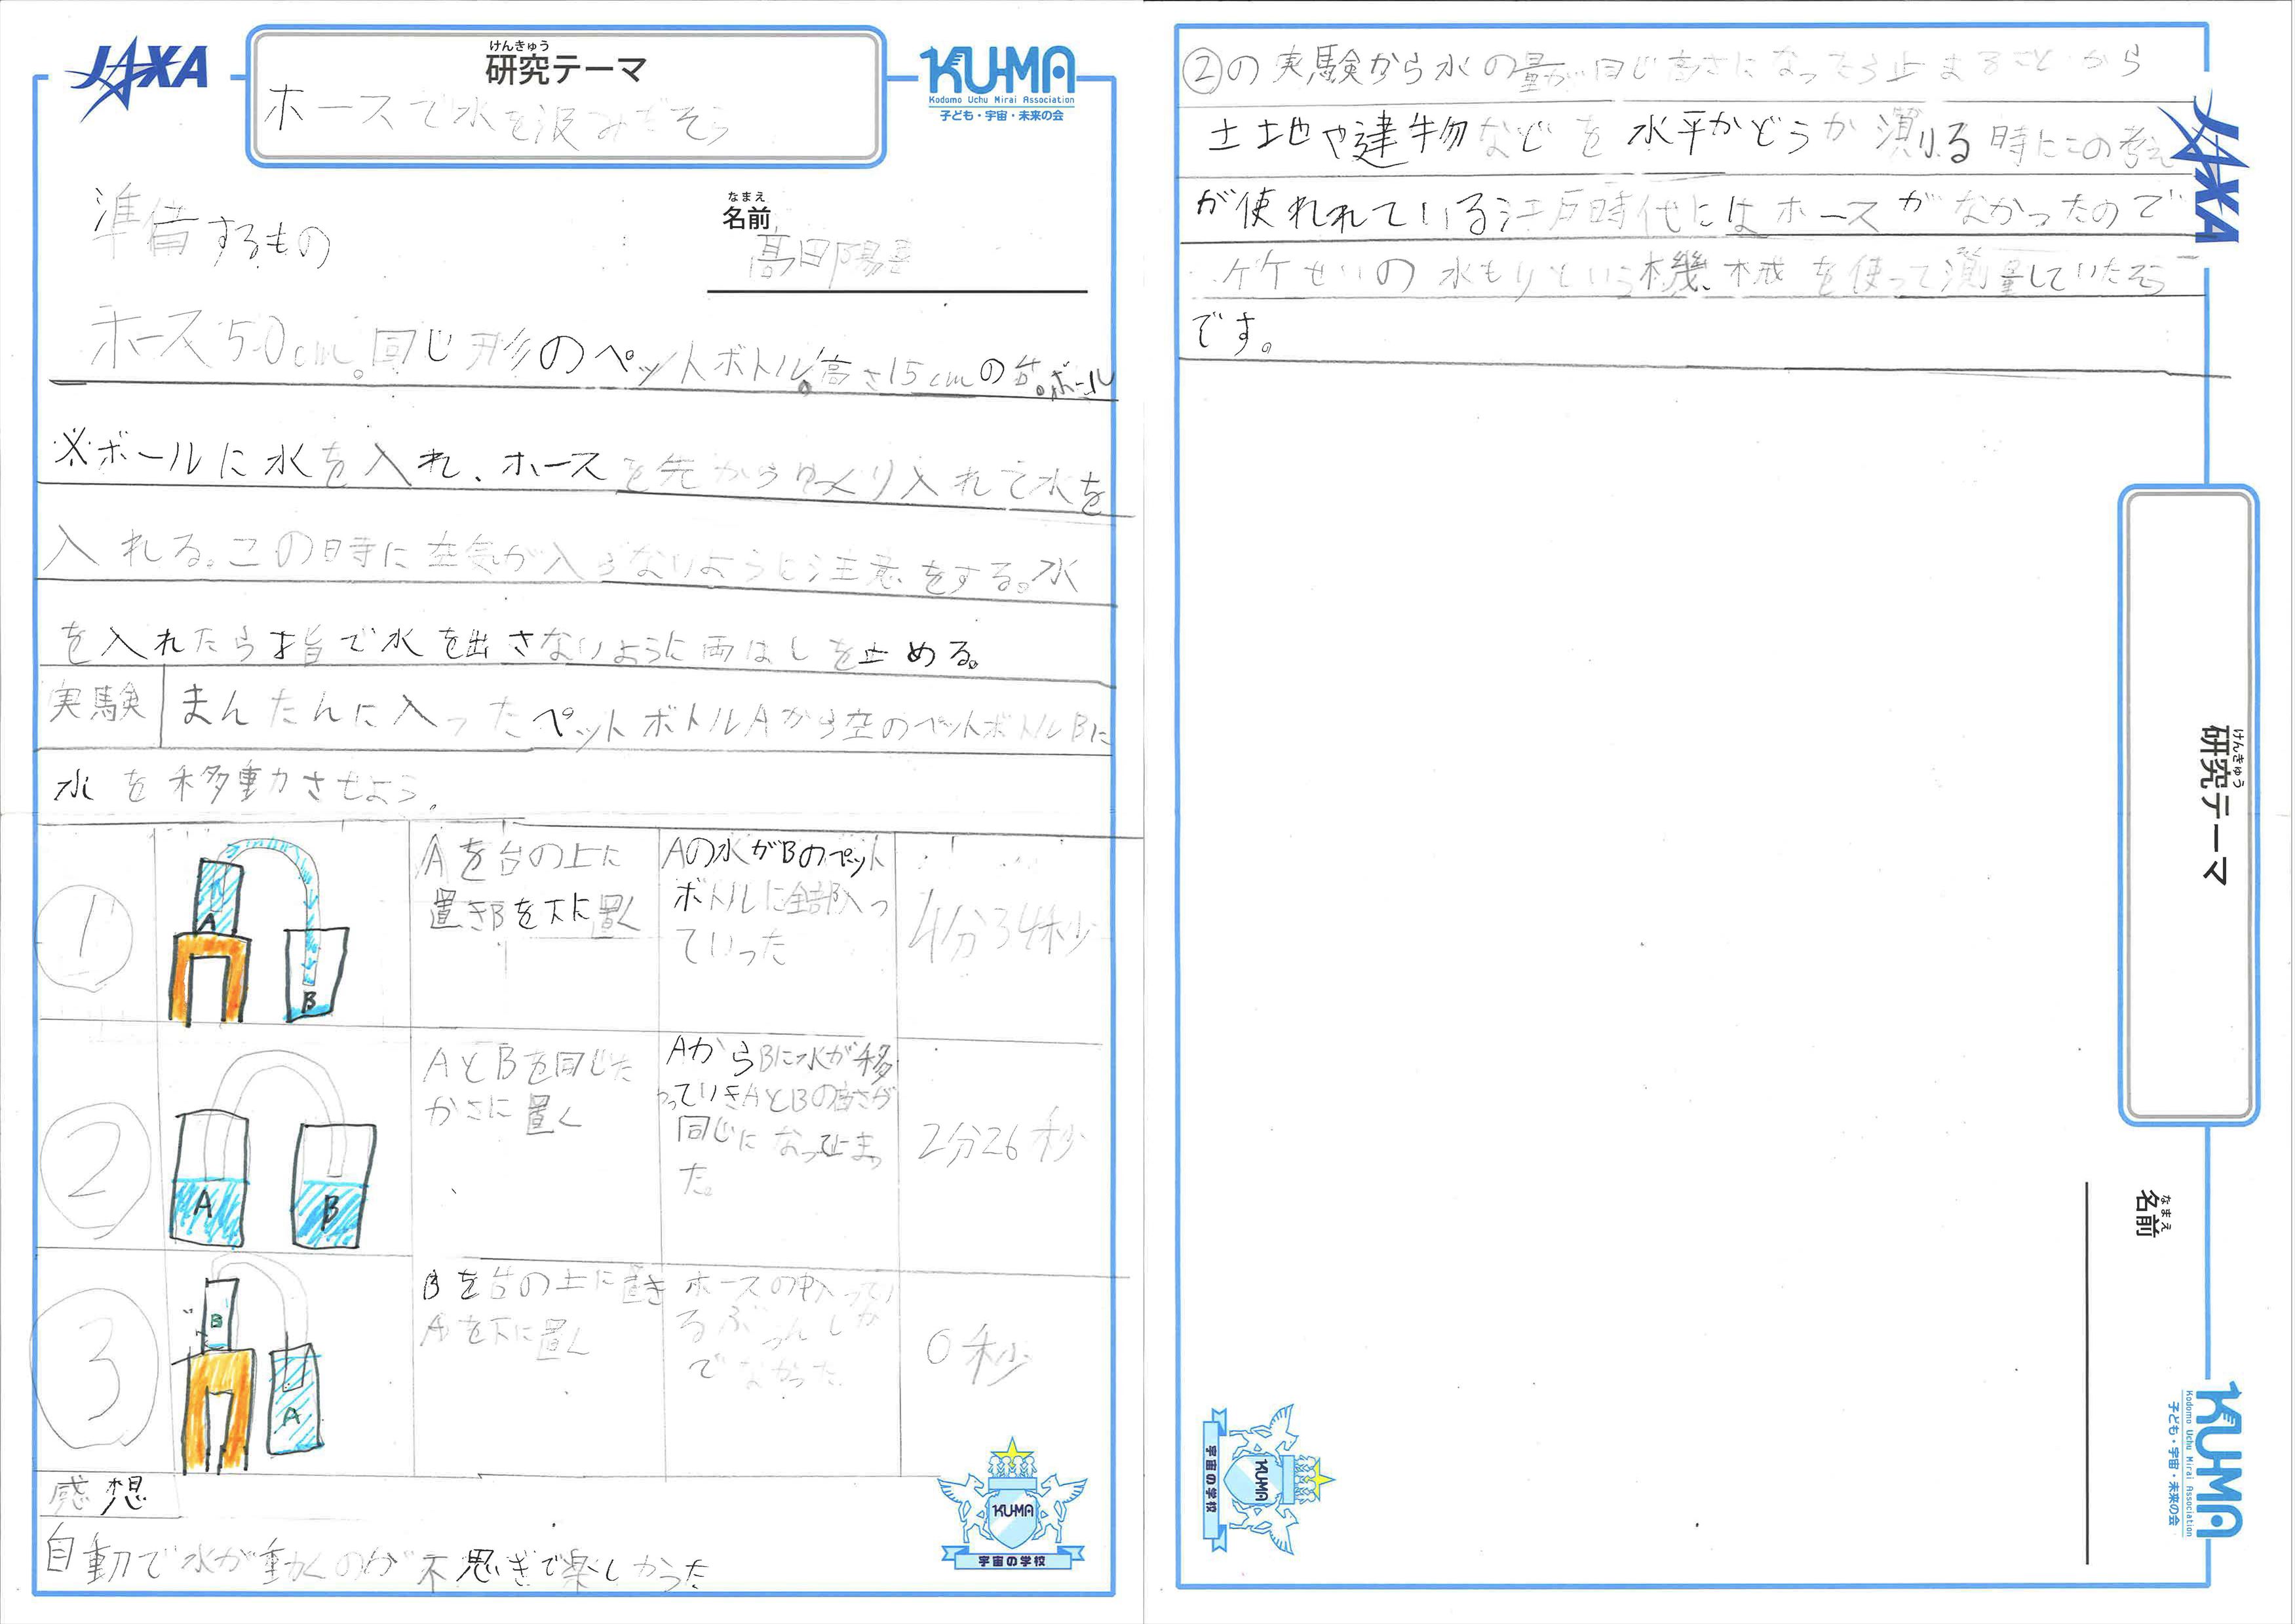 JAXA
けんきゅう
研究テーマ
ホースで水を汲みだそう
KU-MA
Kodomo Uchu Mirai Association
子ども・宇宙・未来の会
準備するもの
なまえ
名前
高田陽
ホース50cm。同じ形のペットボトル。高さ15cmの台。ボール
※ボールに水を入れ、ホースを先からゆっくり入れて水を
入れる。この時に空気が入らないように注意をする。水
を入れたら指で水を出さないように両はしを止める。
実験 まんたんに入ったペットボトルAから空のペットボトルBに
水を移動させよう。
1
A
B
Aを台の上に
置きBを下に置く
Aの水がBのペット
ボトルに全部入っ
ていった
4分34秒
2
A
B
AとBを同じた
かさに置く
AからBに水が移
っていきAとBの高さが
同じになって止まっ
た。
2分26秒
3
B
A
Bを台の上に置き
Aを下に置く
ホースの中入ってい
るぶんしか
でなかった
0秒
感想
自動で水が動くのが不思ぎで楽しかった
KU-MA
宇宙の学校
②の実験から水の量が同じ高さになったら止まることから
土地や建物などを水平かどうか測る時にこの考え
が使れれている江戸時代にはホースがなかったので
竹せいの水もりという機械を使って測量していたそう
です。
JAXA
けんきゅう
研究テーマ
なまえ
名前
KU-MA
Kodomo Uchu Mirai Association
子ども・宇宙・未来の会
KU-MA
宇宙の学校